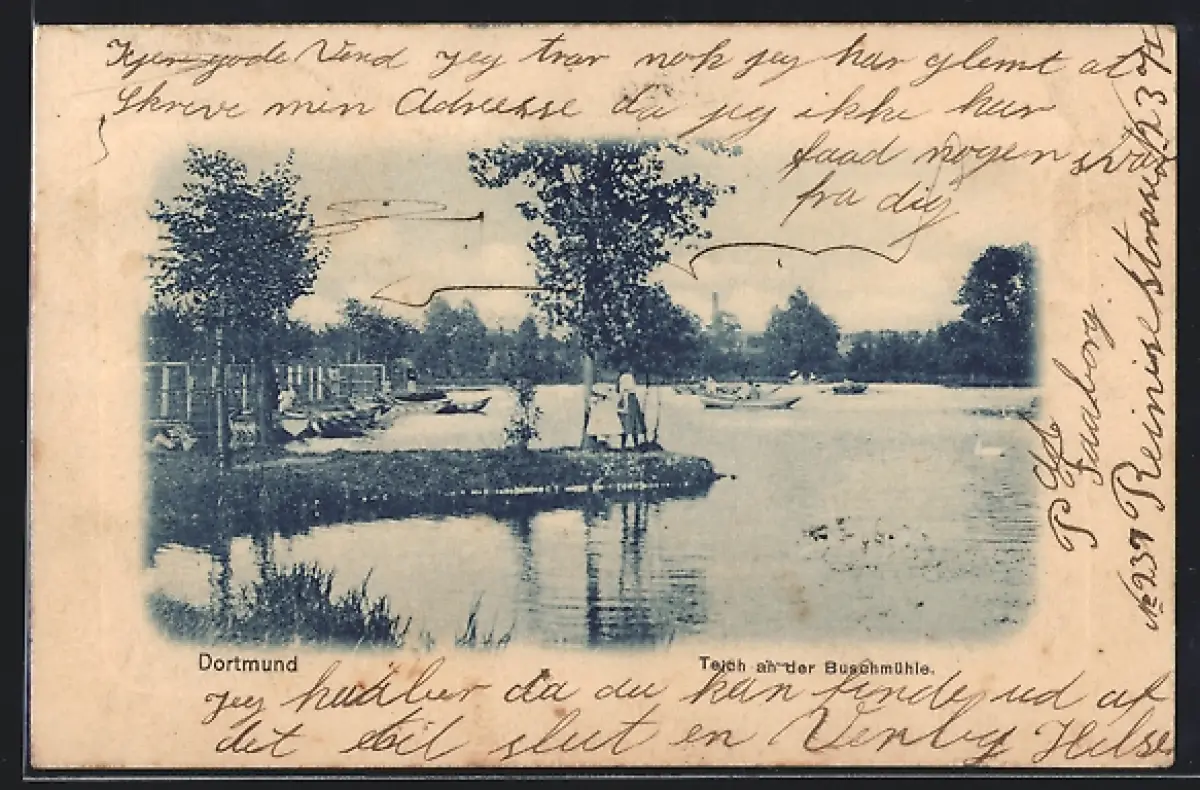 Kjer gode Vind jeg tror nok jeg har glemt at
Skreve min Adresse da jeg ikke har
faad nogen svar
fra dig
Dortmund
Teich an der Buschmühle.
jeg haaber da du kan finde ud af
det til slut en Venlig Hilsen
P
Faaborg.
No 237